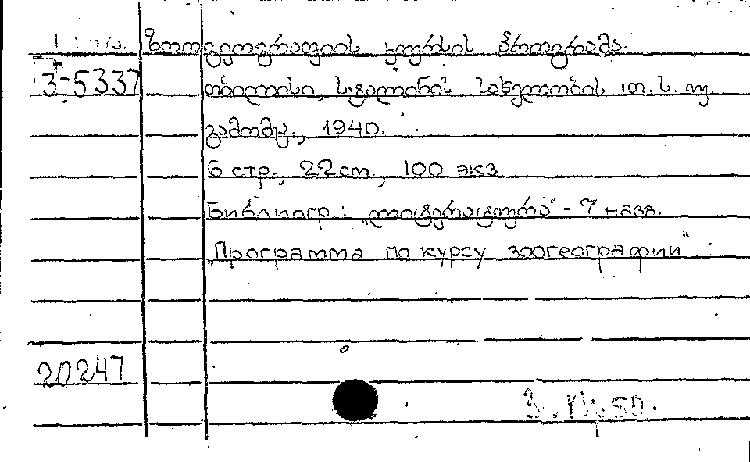 ზოოგეოგრაფიის კურსის პროგრამა.
З-5337
თბილისი, სტალინის სახელობის თ. ს. უ.
გამომც., 1940.
6 стр., 22 cm., 100 экз
Библиогр.: „ლიტერატურა" - 7 назв.
„Программа по курсу зоогеографии"
20247